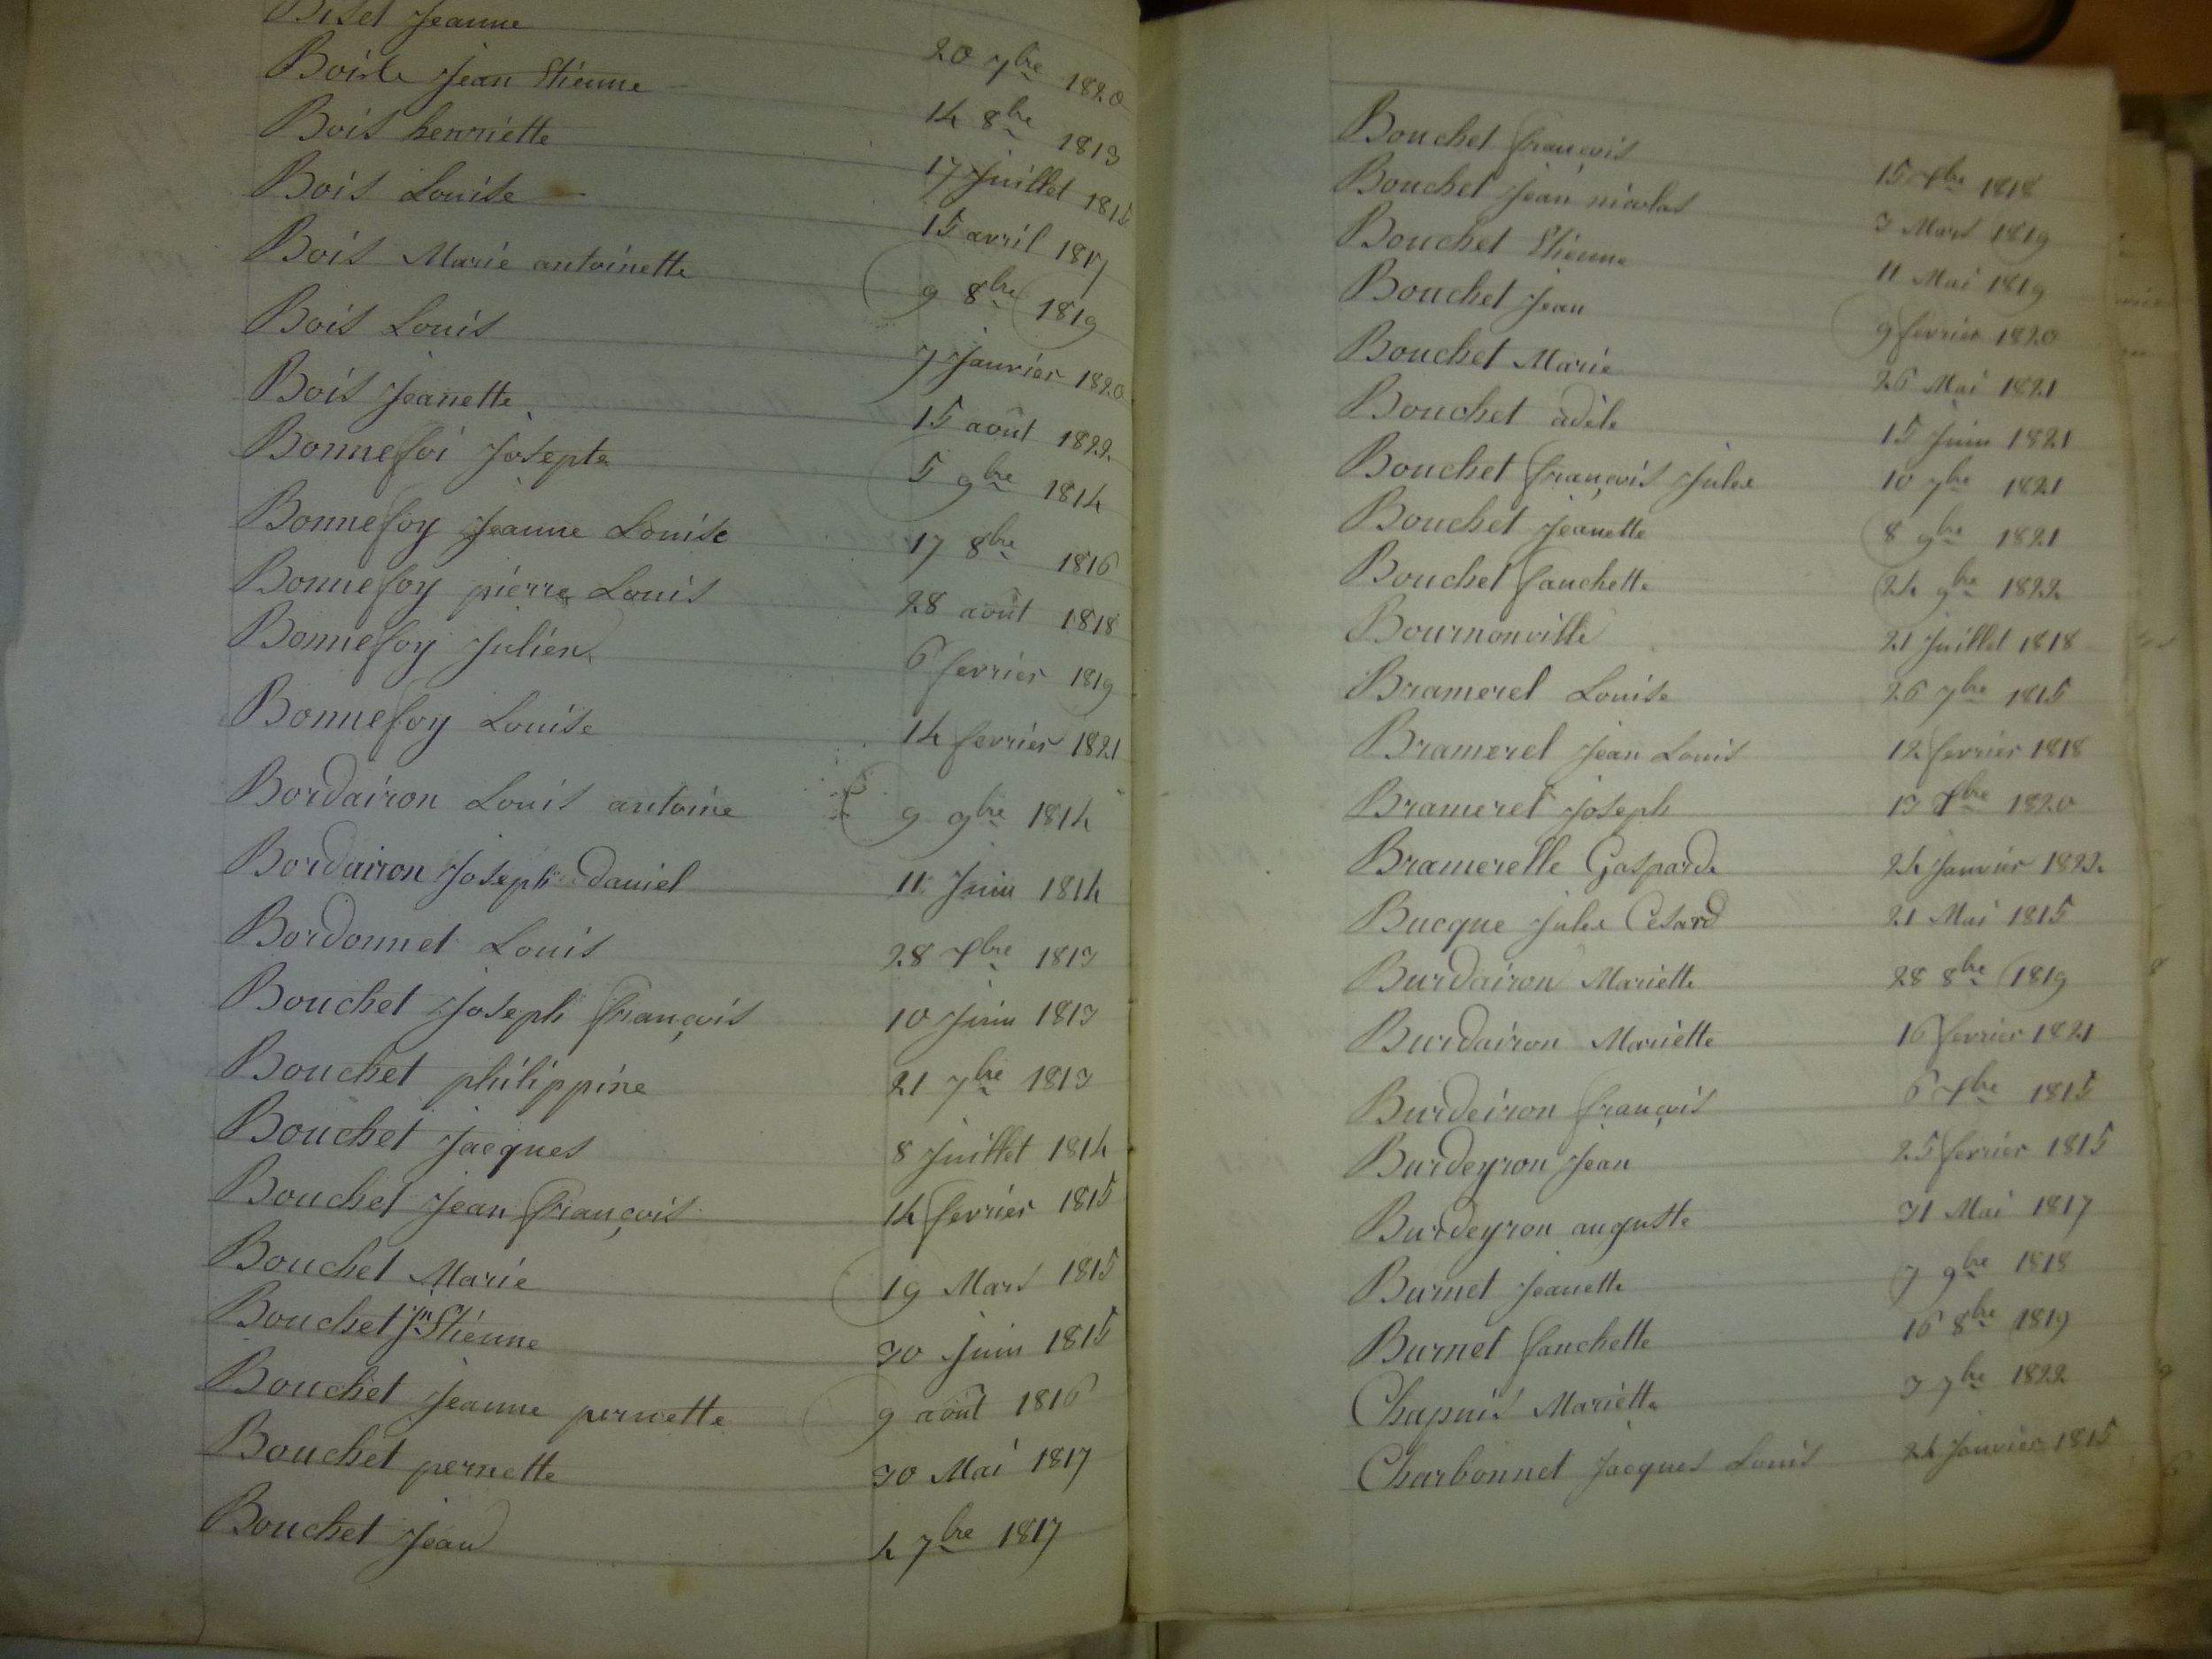 Biset Jeanne 20 7bre 1820
Boiste Jean Etienne 14 8bre 1813
Bois henriette 17 Juillet 1815
Bois Louise 15 avril 1817
Bois Marie antoinette 9 8bre 1819
Bois Louis 7 Janvier 1820
Bois Jeanette 15 août 1822
Bonnefoi Josepte 5 9bre 1814
Bonnefoy Jeanne Louise 17 8bre 1816
Bonnefoy pierre Louis 28 août 1818
Bonnefoy Julien 6 fevrier 1819
Bonnefoy Louise 14 fevrier 1821
Bordairon Louis antoine 9 9bre 1814
Bordairon Joseph daniel 11 Juin 1814
Bordonnet Louis 28 Xbre 1813
Bouchet Joseph françois 10 Juin 1813
Bouchet philippine 21 7bre 1813
Bouchet Jacques 8 Juillet 1814
Bouchet Jean françois 14 fevrier 1815
Bouchet Marie 19 Mars 1815
Bouchet Jn Etienne 30 Juin 1815
Bouchet Jeanne pernette 9 août 1816
Bouchet pernette 30 Mai 1817
Bouchet Jean 4 7bre 1817
Bouchet françois 15 Xbre 1818
Bouchet Jean nicolas 3 Mars 1819
Bouchet Etienne 11 Mai 1819
Bouchet Jean 9 fevrier 1820
Bouchet Marie 26 Mai 1821
Bouchet adèle 15 Juin 1821
Bouchet françois Jules 10 7bre 1821
Bouchet Jeanette 8 9bre 1821
Bouchet fanchette 24 9bre 1822
Bournonville 21 Juillet 1818
Bramerel Louise 26 7bre 1815
Bramerel Jean Louis 12 fevrier 1818
Bramerel Joseph 13 Xbre 1820
Bramerelle Gasparde 24 Janvier 1822
Bucque Jules Cesard 21 Mai 1815
Burdairon Mariette 28 8bre 1819
Burdairon Mariette 16 fevrier 1821
Burdeiron françois 6 Xbre 1815
Burdeyron Jean 25 fevrier 1815
Burdeyron auguste 31 Mai 1817
Burnet Jeanette 7 9bre 1818
Burnet fanchette 16 8bre 1819
Chapuis Mariette 3 7bre 1822
Charbonnet Jacques Louis 24 Janvier 1815